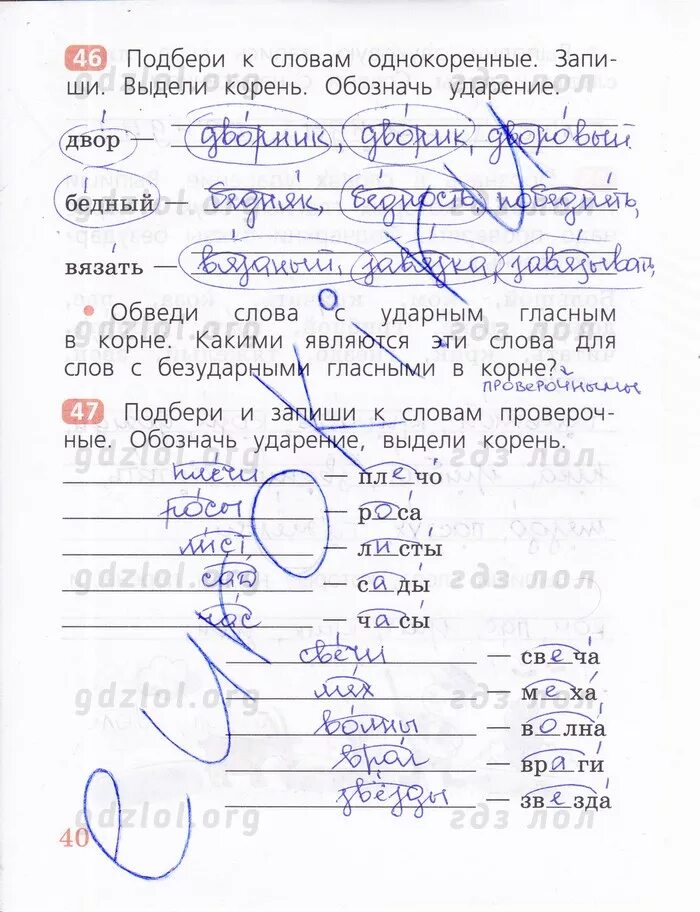 46 Подбери к словам однокоренные. Запи-
ши. Выдели корень. Обозначь ударение.
двор — дворник, дворик, дворовый
бедный — бедняк, бедность, победнеть,
вязать — вязаный, завязка, завязывать,
• Обведи слова с ударным гласным
в корне. Какими являются эти слова для
слов с безударными гласными в корне?
проверочными
47 Подбери и запиши к словам провероч-
ные. Обозначь ударение, выдели корень.
плечи — плечо
росы — роса
лист — листы
сад — сады
час — часы
свечи — свеча
мех — меха
волны — волна
враг — враги
звёзды — звезда
40
gdzlol.org гдз лол